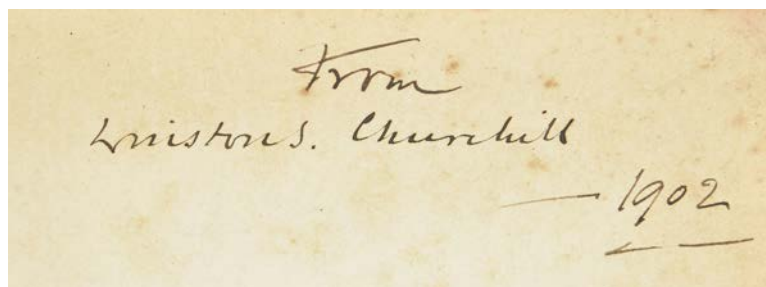 From
Winston S. Churchill
— 1902